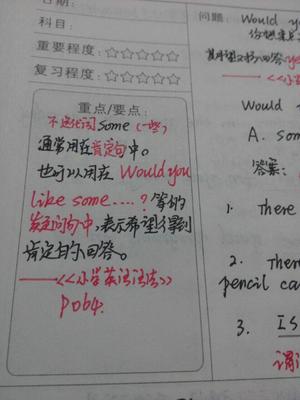 日期:
科目:
重要程度:☆☆☆☆☆
复习程度:☆☆☆☆☆
重点/要点:
不定代词some(一些)
通常用在肯定句中。
也可以用在Would you
like some....?等的
疑问句中,表示希望得到
肯定的回答。
——<<小学英语语法>>
P064.
问题
Would ye
Would
A. som
答案:
1. There
2. Then
pencil ca
3. Is